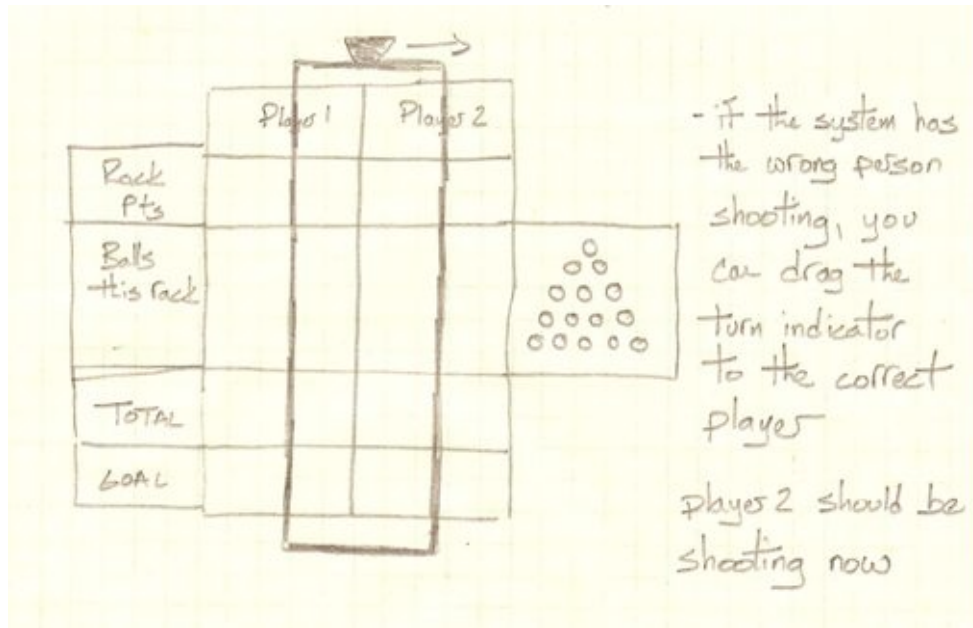 Player 1
Player 2
Rack
Pts
Balls
this rack
TOTAL
GOAL
- if the system has
the wrong person
shooting, you
can drag the
turn indicator
to the correct
player
player 2 should be
shooting now